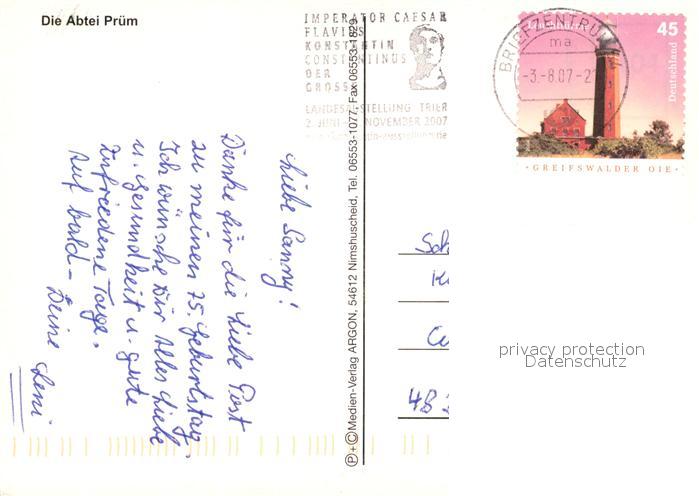 Die Abtei Prüm
IMPERATOR CAESAR
FLAVIUS
KONSTANTIN
CONSTANTINUS
DER
GROSSE
LANDESAUSTELLUNG TRIER
2. JUNI - 4. NOVEMBER 2007
BRIEFZENTRUM
ma
-3.-8.07-21
Leuchttürme
45
Deutschland
GREIFSWALDER OIE
Liebe Sanny!
Danke für die liebe Post
zu meinen 75. Geburtstag,
Ich wünsche Dir Alles Liebe
u. Gesundheit u. gute
zufriedene Tage.
Auf bald - Deine Leni
Ⓟ+©Medien-Verlag ARGON, 54612 Nimshuscheid, Tel. 06553-1077, Fax 06553-1829
Sch
K
48
privacy protection
Datenschutz